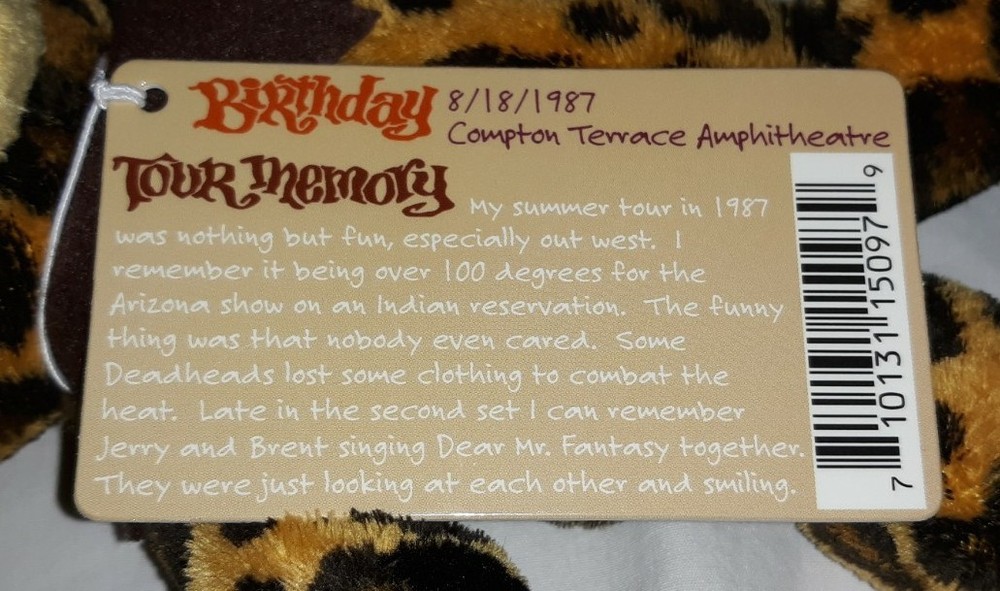 Birthday 8/18/1987
Compton Terrace Amphitheatre
Tour Memory
My summer tour in 1987
was nothing but fun, especially out west. I
remember it being over 100 degrees for the
Arizona show on an Indian reservation. The funny
thing was that nobody even cared. Some
Deadheads lost some clothing to combat the
heat. Late in the second set I can remember
Jerry and Brent singing Dear Mr. Fantasy together.
They were just looking at each other and smiling.
7 10131 15097 9